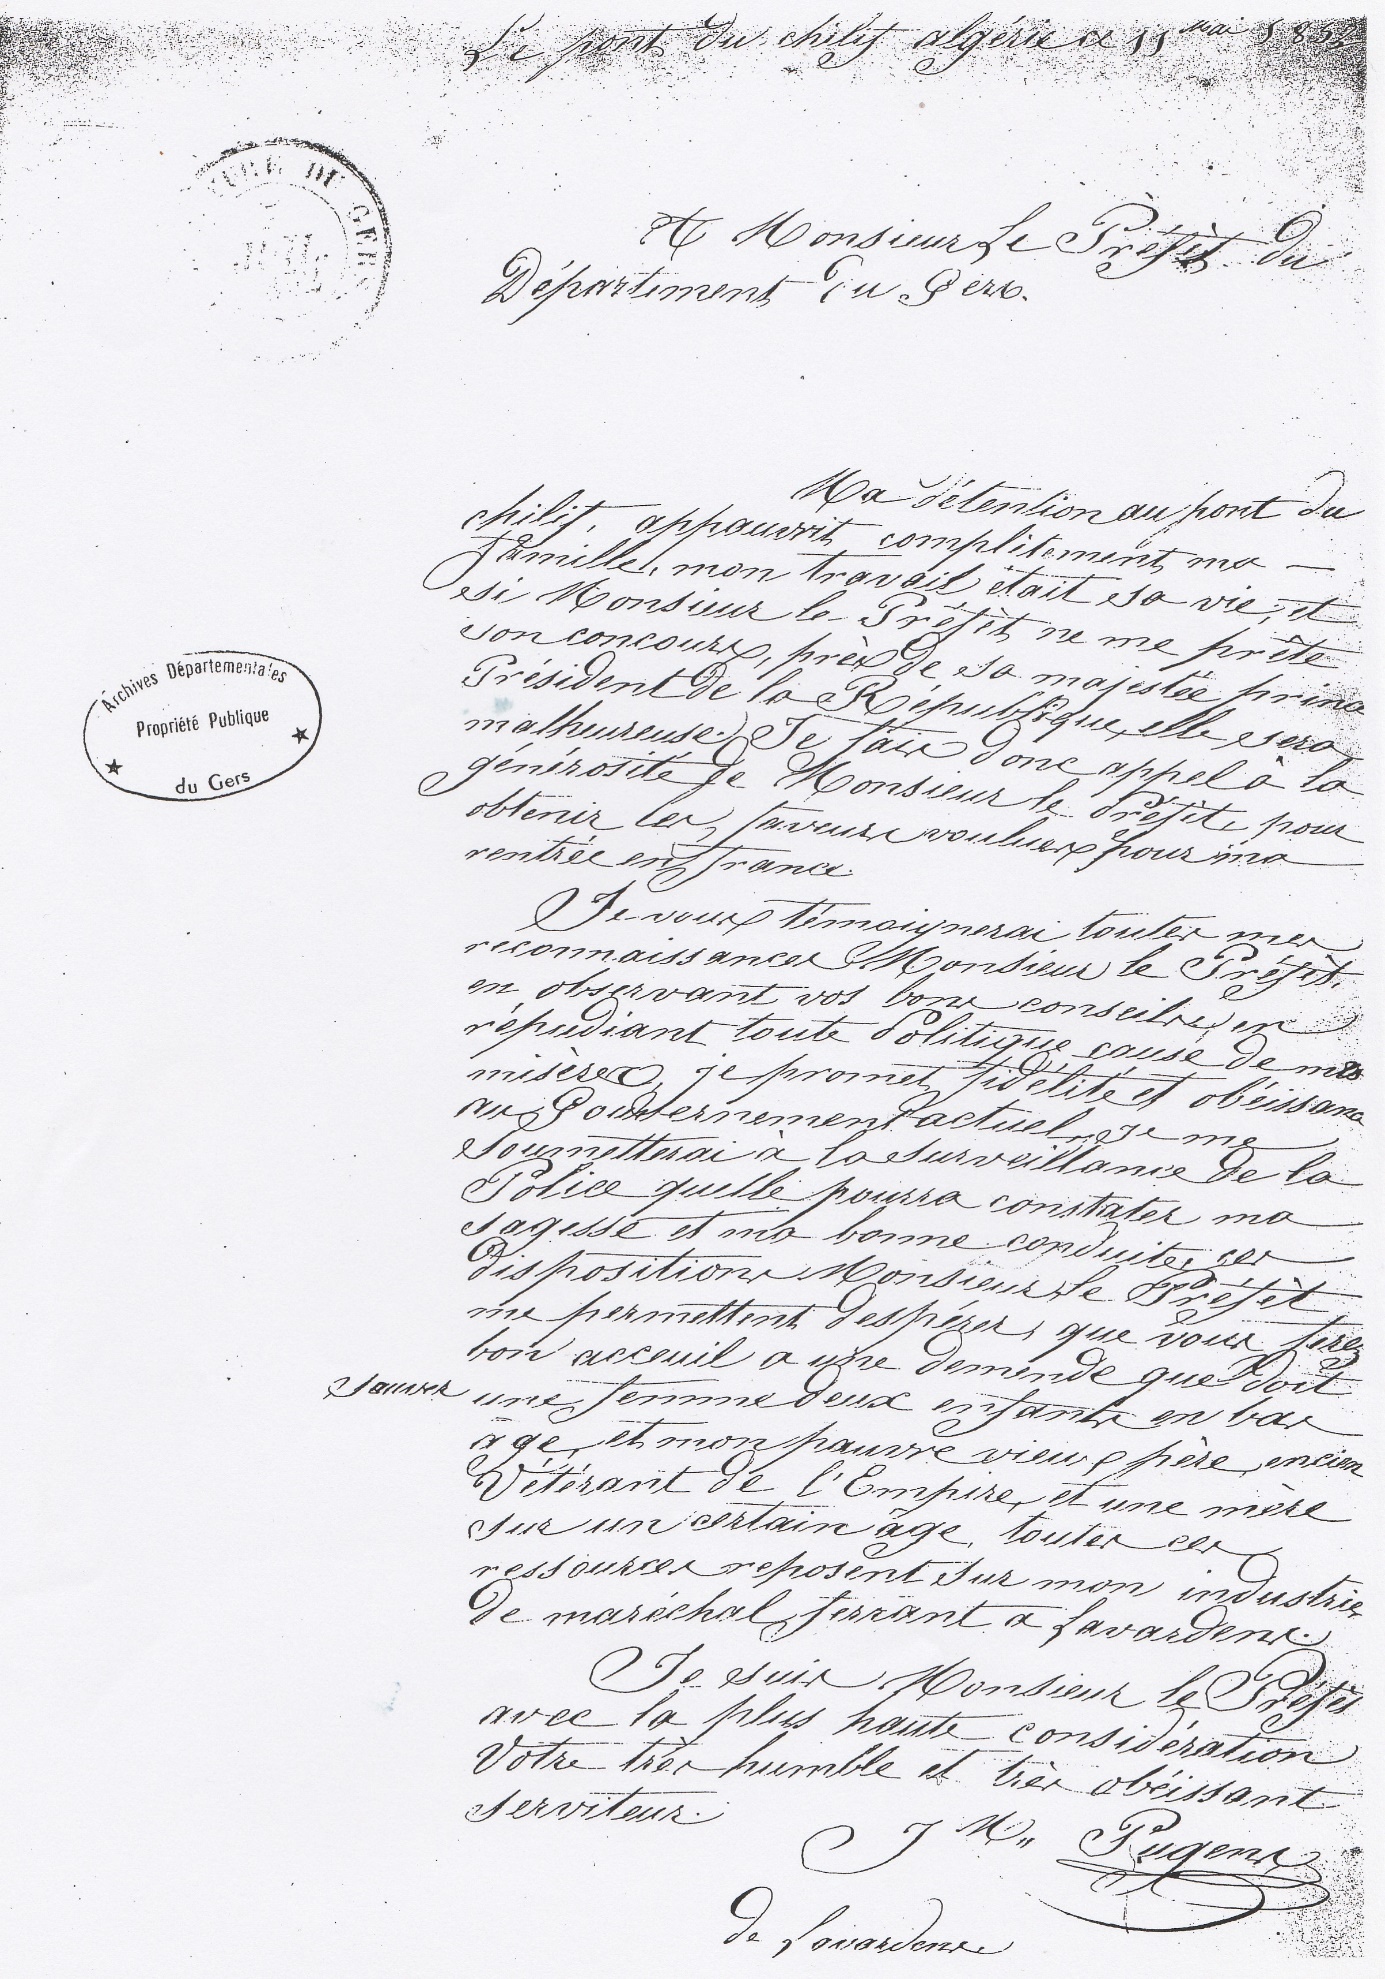 Le pont du chilif algérie ce 11 mai 1852
URE DU GERS
A Monsieur Le Préfèt du
Département Du Gers.
Ma détention au pont du
chilif, appauvrit complètement ma
famille, mon travail était sa vie, et
si Monsieur le Préfèt ne me prête
son concours, près de sa majestée prince
Président de la République, elle sera
malheureuse. Je fais donc appel à la
générosité de Monsieur le Préfèt, pour
obtenir les faveurs voulues pour ma
rentrée en france.
Archives Départementales
Propriété Publique
du Gers
Je vous témoignerai toutes mes
reconnaissances Monsieur le Préfèt,
en observant vos bons conseils, en
répudiant toute Politique, cause de mes
misères, je promet fidélité et obéissance
au Gouvernement actuel, je me
soumetterai à la surveillance de la
Police quelle pourra constater ma
sagesse et ma bonne conduite, ces
dispositions Monsieur le Préfèt
me permettent despérer, que vous ferez
bon acceuil a une demende que doit
sauver une femme deux enfants en bas
âge, et mon pauvre vieux père, encien
Vétérant de l'Empire, et une mère
sur un certain âge, toutes ces
ressources reposent sur mon industrie
de maréchal ferrant a Lavardens.
Je suis Monsieur le Préfèt
avec la plus haute considération
Votre très humble et très obéissant
serviteur.
J M Pugens
de Lavardens